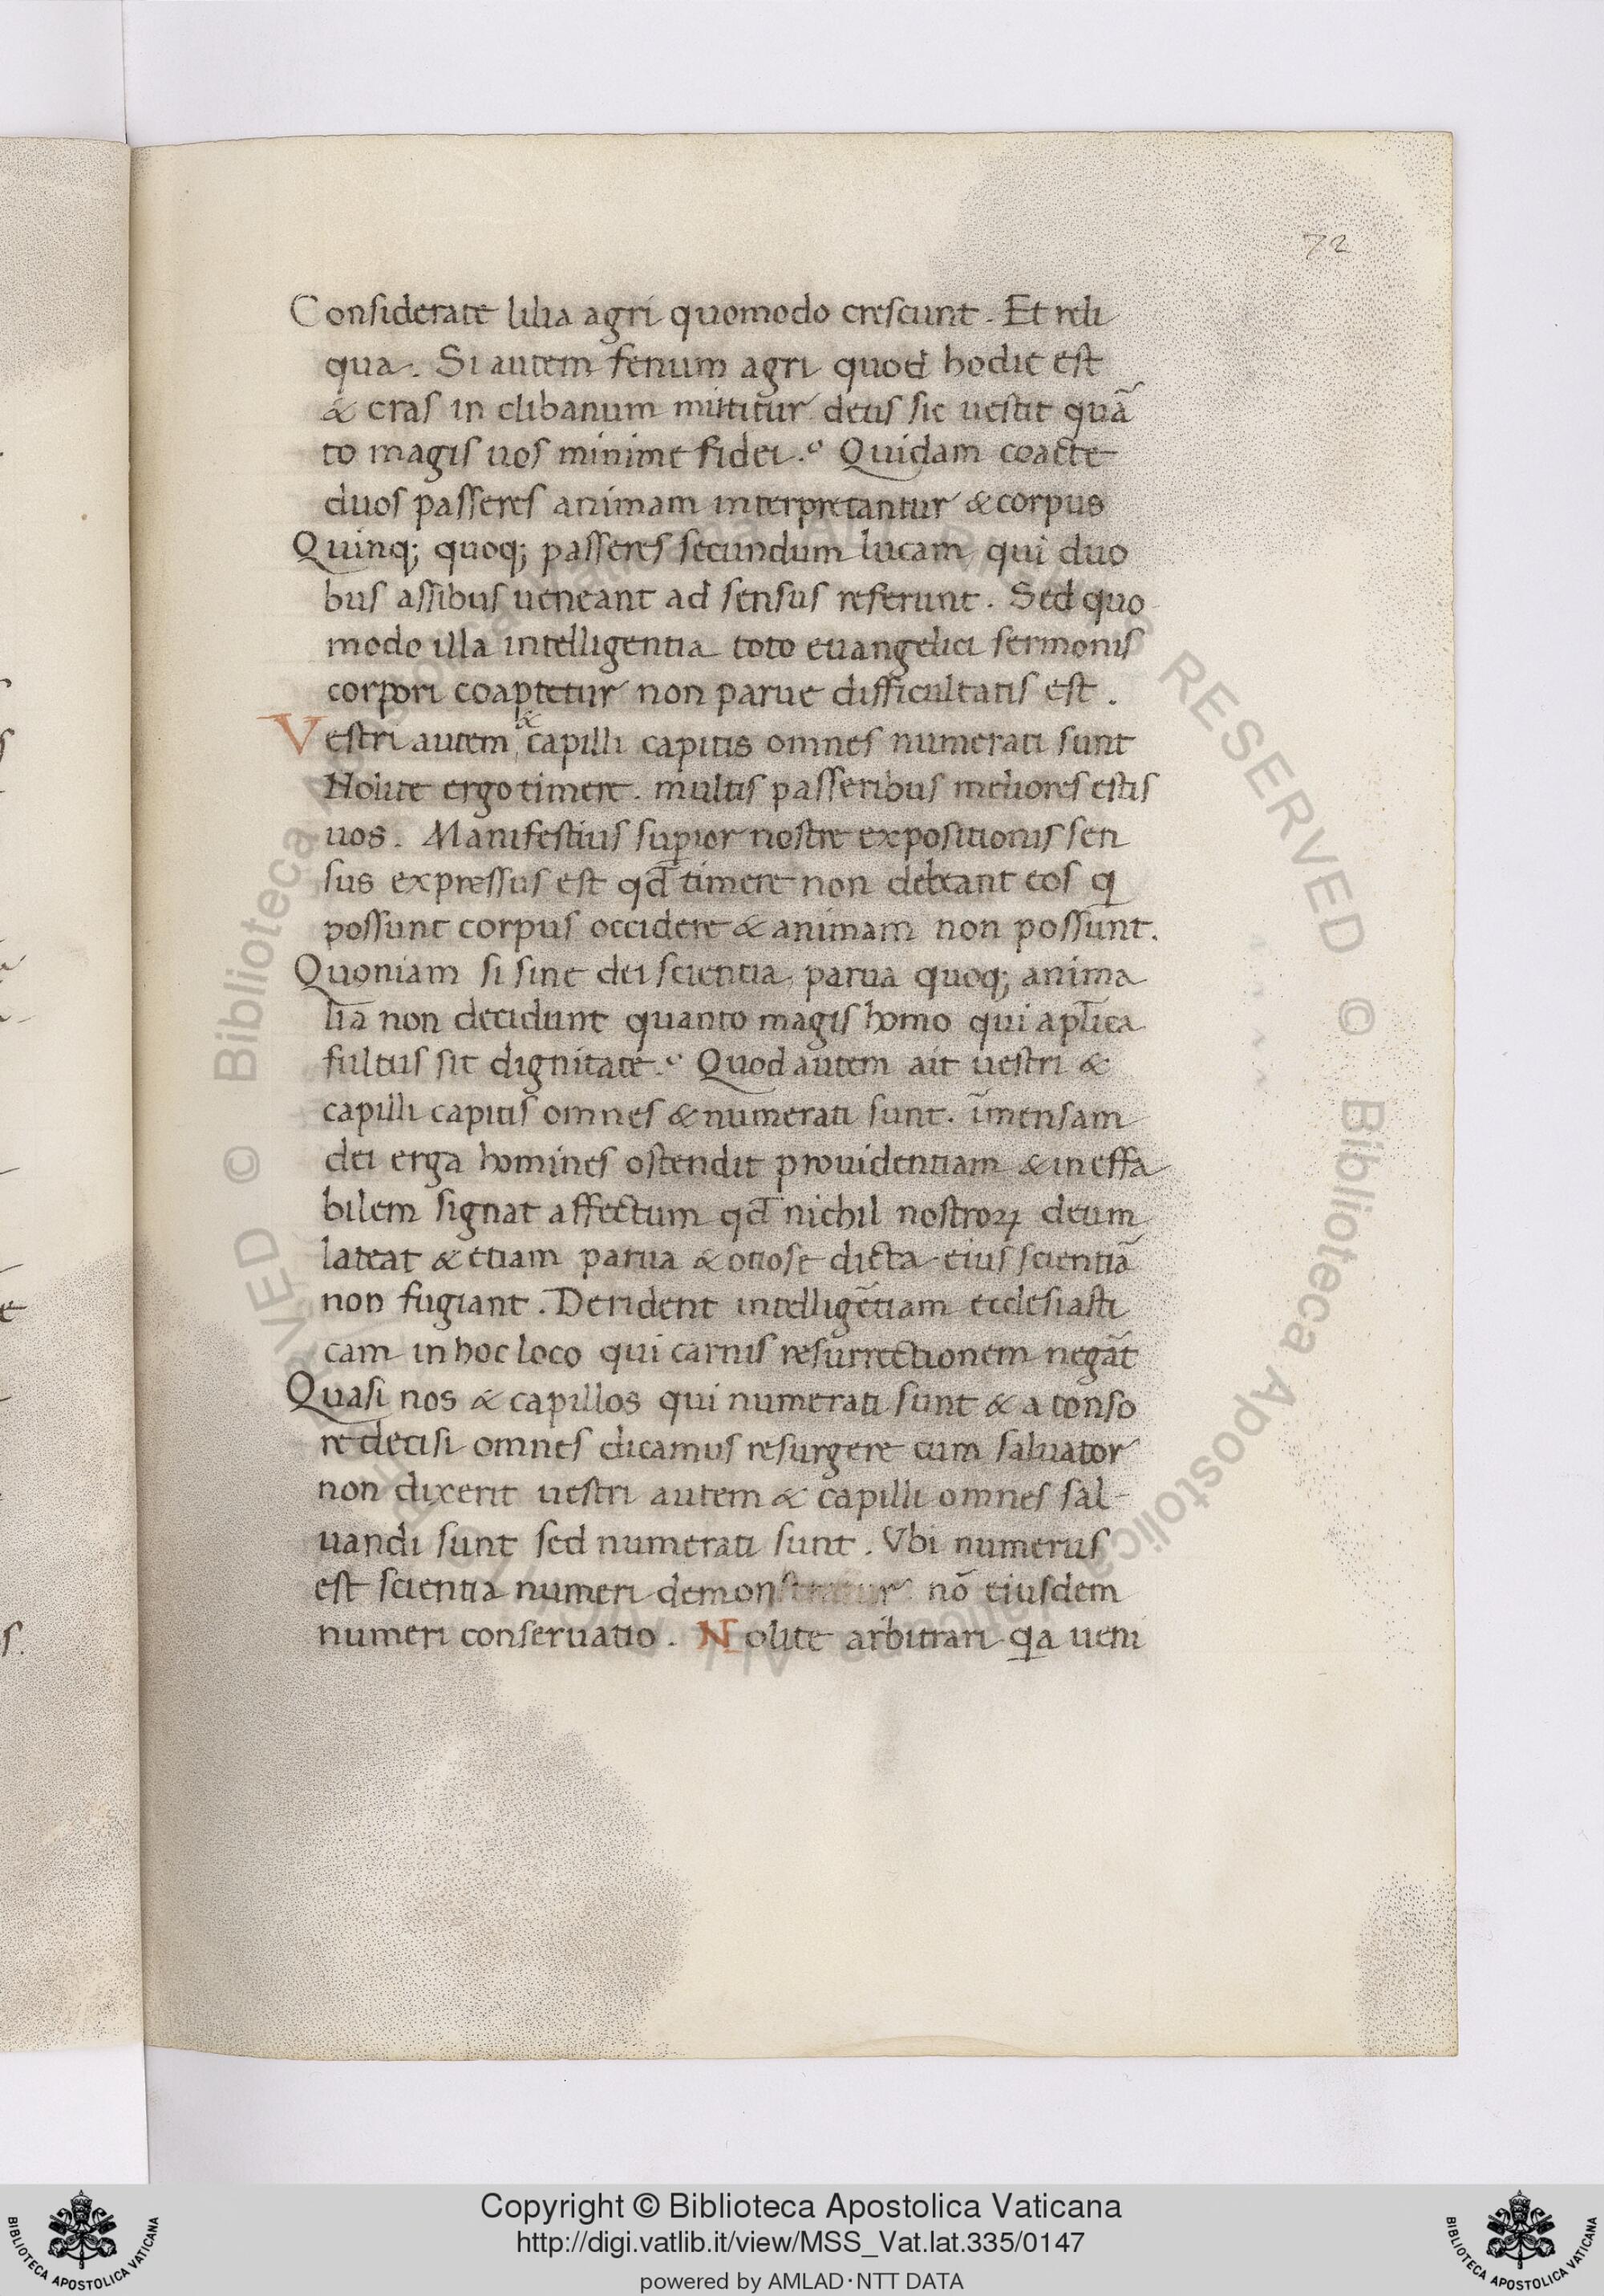 72
Considerate lilia agri quomodo crescunt. Et reli
qua. Si autem fenum agri quod hodie est
& cras in clibanum mittitur deus sic uestit quā
to magis uos minime fidei. Quidam coacte
duos passeres animam interpretantur & corpus
Quinq; quoq; passeres secundum lucam qui duo
bus assibus ueneant ad sensus referunt. Sed quo
modo illa intelligentia toto euangelici sermonis
corpori coaptetur non parue difficultatis est.
Vestri autem & capilli capitis omnes numerati sunt
Nolite ergo timere. multis passeribus meliores estis
uos. Manifestius supior nostre expositionis sen
sus expressus est qd̄ timere non debeant eos qi
possunt corpus occidere & animam non possunt.
Quoniam si sine dei scientia parua quoq; anima
lia non decidunt quanto magis homo qui apl̄ica
fultus sit dignitate. Quod autem ait uestri &
capilli capitis omnes & numerati sunt. īmensam
dei erga homines ostendit prouidentiam & ineffa
bilem signat affectum qd̄ nichil nostroꝝ deum
lateat & etiam parua & otiose dicta eius scientiā
non fugiant. Derident intelligētiam ecclesiasti
cam in hoc loco qui carnis resurrectionem negāt
Quasi nos & capillos qui numerati sunt & a tonso
re decisi omnes dicamus resurgere cum saluator
non dixerit uestri autem & capilli omnes sal-
uandi sunt sed numerati sunt. Vbi numerus
est scientia numeri demonstratur nō eiusdem
numeri conseruatio. Nolite arbitrari qia ueni
© Biblioteca Apostolica Vaticana
Copyright © Biblioteca Apostolica Vaticana
http://digi.vatlib.it/view/MSS_Vat.lat.335/0147
powered by AMLAD·NTT DATA
BIBLIOTECA APOSTOLICA VATICANA
BIBLIOTECA APOSTOLICA VATICANA